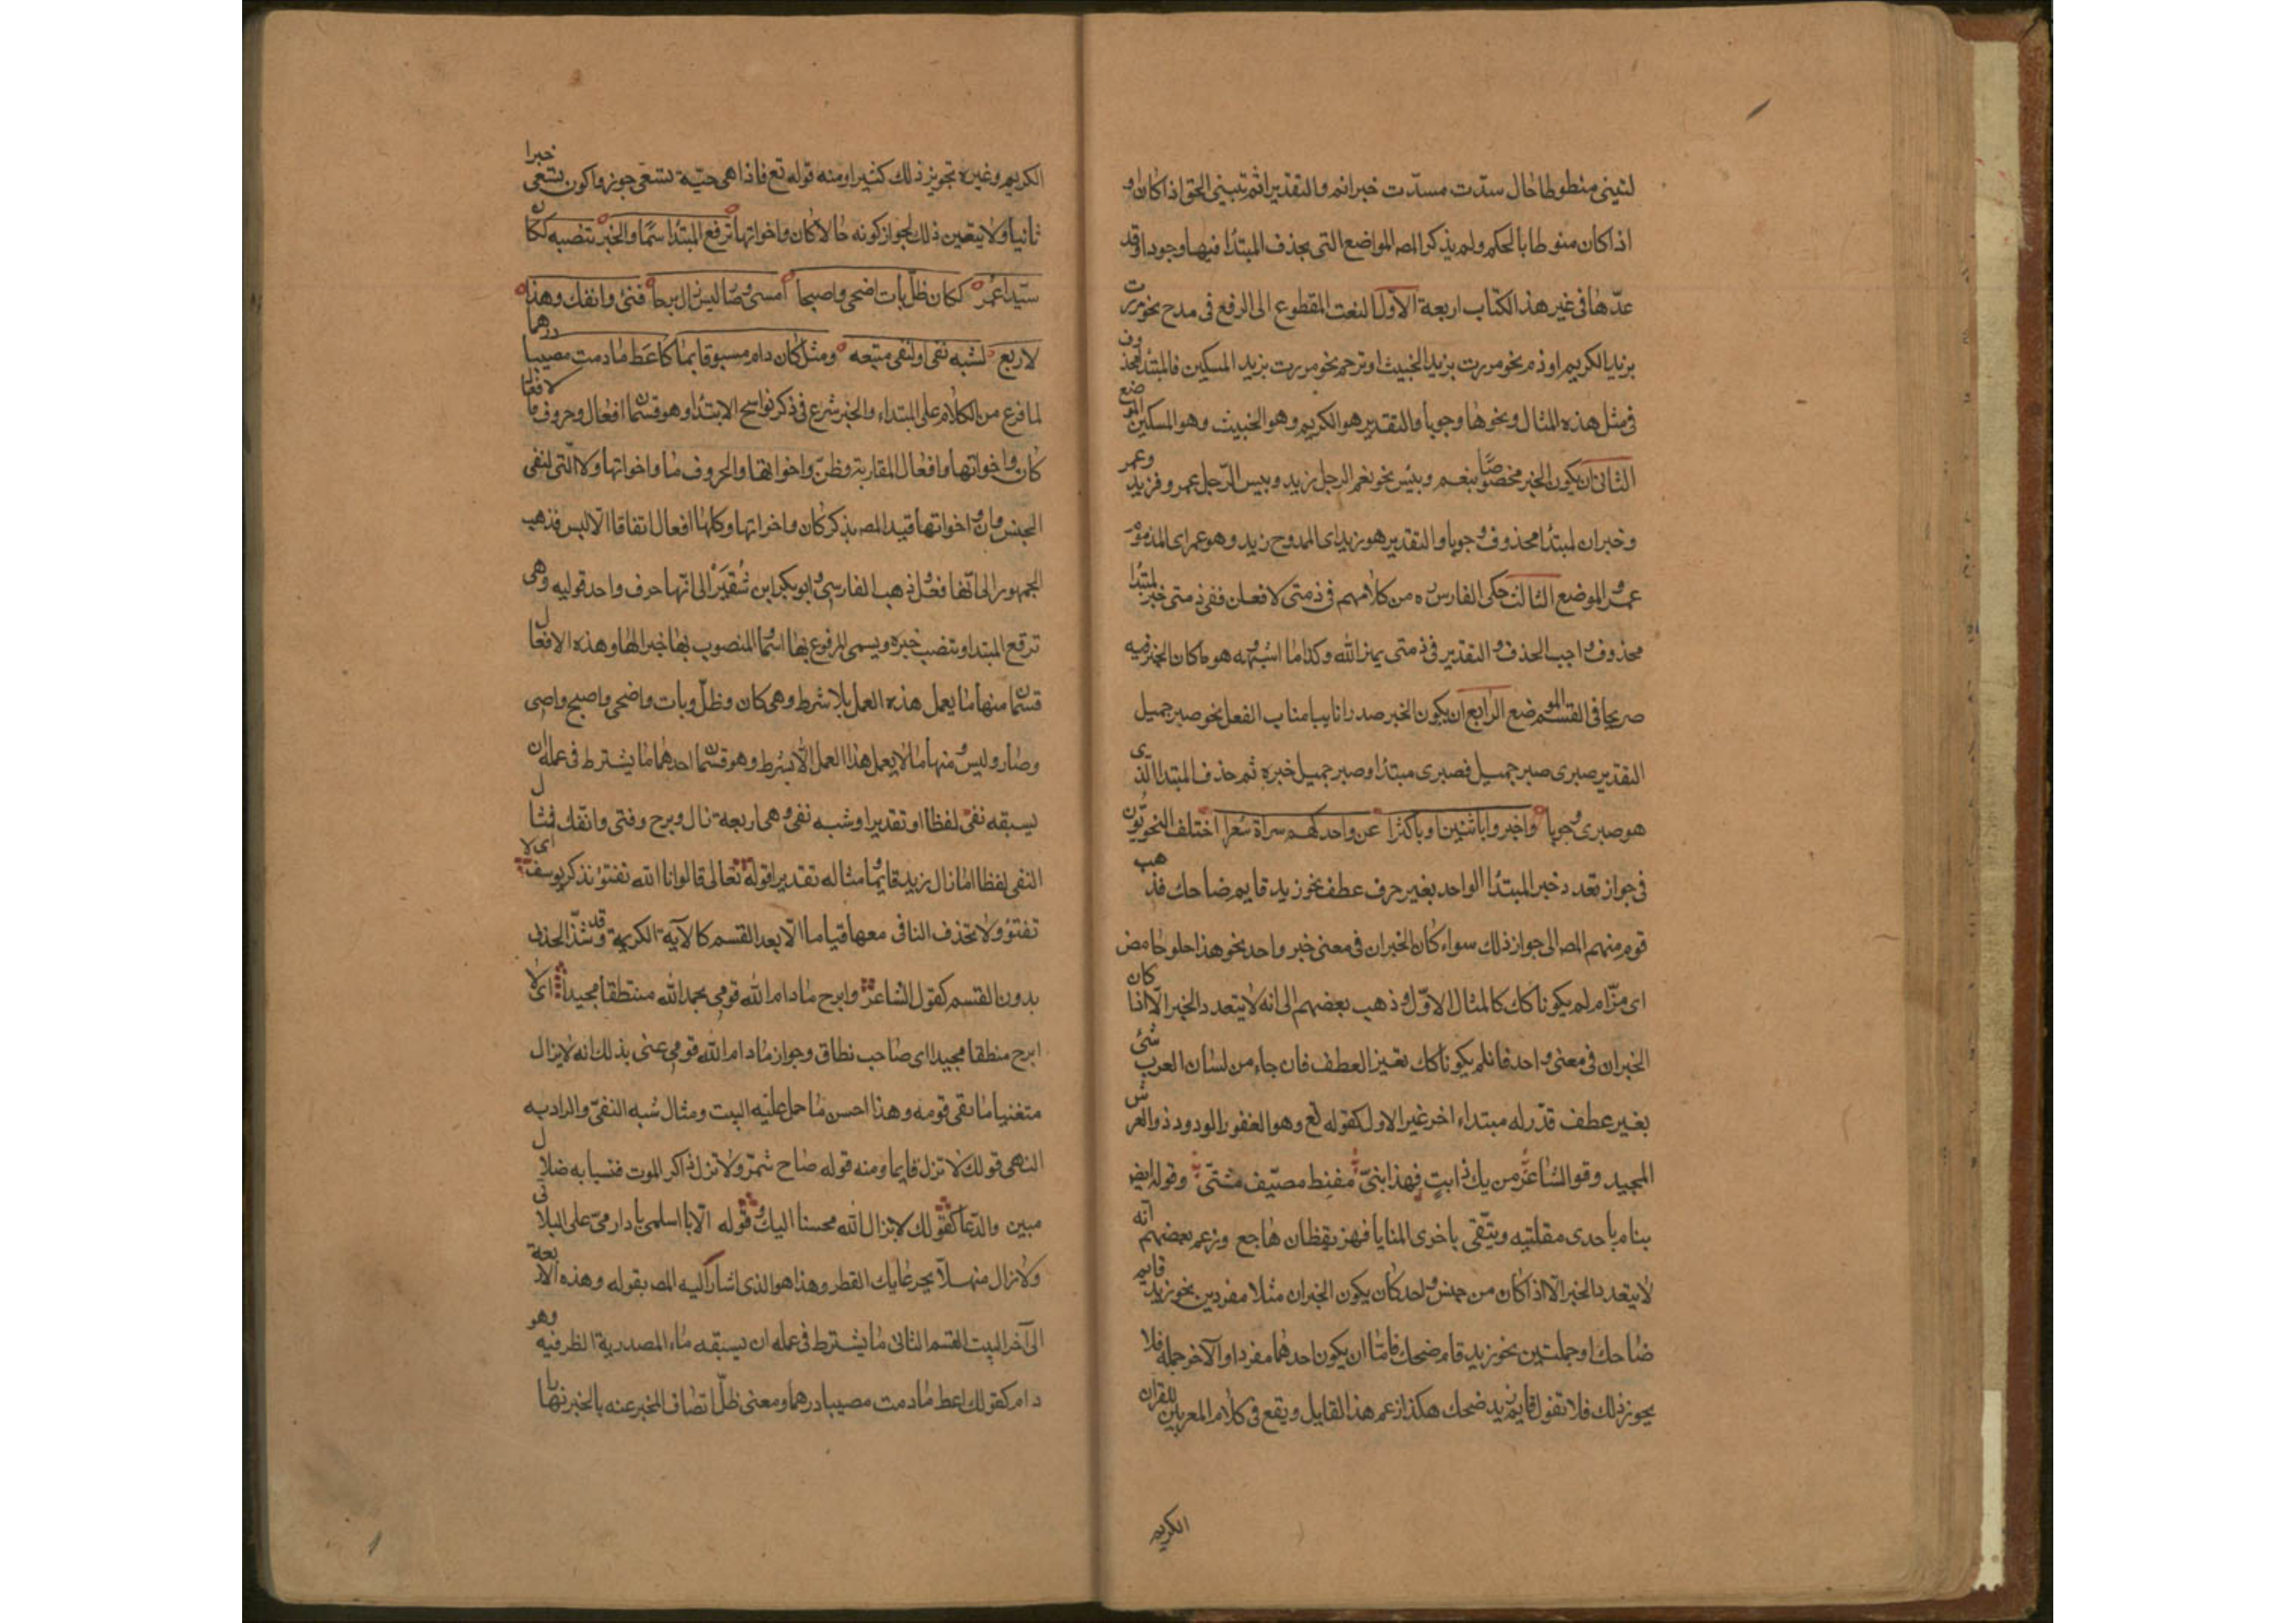 لتبيني منطوطا حال سدّت مسدّت خبر اتم والتقدير اتم تبييني الحق اذا كان او
اذا كان منوطا بالحكم ولم يذكر المص المواضع التى يحذف المبتدا فيها وجوبا وقد
عدّها فى غير هذا الكتاب اربعة الاوّل النعت المقطوع الى الرفع فى مدح نحو مررت
بزيد الكريم او ذم نحو مررت بزيد الخبيث او ترحم نحو مررت بزيد المسكين فالمبتدا محذوف
فى مثل هذه المثال ونحوها وجوبا والتقدير هو الكريم وهو الخبيث وهو المسكين الموضع
الثانى ان يكون الخبر مخصوصًا بنعم وبئس نحو نعم الرجل زيد وبيس الرّجل عمرو فزيد وعمر
وخبران لمبتدا محذوف وجوبا والتقدير هو زيد اى الممدوح زيد وهو عمر اى المذموم
عمرو الموضع الثالث حكى الفارسى من كلامهم فى ذمتى لافعلن ففى ذمتى خبر لمبتدا
محذوف واجب الحذف والتقدير فى ذمتى يمين الله وكذا ما اشبهه هو ما كان الخبر فيه
صريحا فى القسم الموضع الرابع ان يكون الخبر مصدرا نايبا مناب الفعل نحو صبر جميل
التقدير صبرى صبر جميل فصبرى مبتدا وصبر جميل خبره ثم حذف المبتدا الذى
هو صبرى وجوبا واخبروا باثنين او باكثرا عن واحد كهم سراة شعرا اختلف النحويّون
فى جواز تعدد خبر المبتدا الواحد بغير حرف عطف نحو زيد قايم ضاحك فذهب
قوم منهم المص الى جواز ذلك سواء كان الخبران فى معنى خبر واحد نحو هذا حلو حامض
اى مزّ ام لم يكونا كك كالمثال الاوّل وذهب بعضهم الى انه لا يتعدد الخبر الّا اذا كان
الخبران فى معنى واحد فان لم يكونا كك تعين العطف فان جاء من لسان العرب شئ
بغير عطف قدّر له مبتداء اخر غير الاول كقوله تع وهو الغفور الودود ذو العرش
المجيد وقول الشاعر من يك ذا بتٍ فهذا بتّى مقيظ مصيّف مشتّى وقوله ايض
ينام باحدى مقلتيه ويتّقى باخرى المنايا فهو يقظان هاجع وزعم بعضهم انه
لا يتعدد الخبر الّا اذا كان من جنس واحد كان يكون الخبران مثلا مفردين نحو زيد قايم
ضاحك او جملتين نحو زيد قام ضحك فامّا ان يكون احدهما مفردا والآخر جملة فلا
يجوز ذلك فلا تقول قايم زيد ضحك هكذا زعم هذا القايل ويقع فى كلام المعربين للقران
الكريم
الكريم وغيره تجويز ذلك كثيرا ومنه قوله تع فاذا هى حيّة تسعى جوزوا كون تسعى خبرا
ثانيا ولا يتعين ذلك لجواز كونه حالا كان واخواتها ترفع المبتدا اسمًا والخبر تنصبه ككان
سيّدا عمر ككان ظلّ بات اضحى واصبحا امسى وصار ليس زال برحا فتئ وانفك وهذى
الاربعة لشبه نفى او لنفى متبعه ومثل كان دام مسبوقا بما كاعط ما دمت مصيبا درهما
لما فرغ من الكلام على المبتداء والخبر شرع فى ذكر نواسخ الابتدا وهو قسمان افعال وحروف فالافعال
كان واخواتها وافعال المقاربة وظنّ واخواتها والحروف ما واخواتها ولا التى لنفى
الجنس وان واخواتها فبد المص بذكر كان واخواتها وكلها افعال اتفاقا الّا ليس فذهب
الجمهور الى انّها فعل وذهب الفارسى وابو بكر ابن شُقَيْر الى انّها حرف واحد قوليه وهى
ترفع المبتدا وتنصب خبره ويسمى المرفوع بها اسما والمنصوب بها خبرا لها وهذه الافعال
قسمان منها ما يعمل هذه العمل بلا شرط وهى كان وظلّ وبات واضحى واصبح وامسى
وصار وليس ومنها ما لا يعمل هذا العمل الّا بشرط وهو قسمان احدهما ما يشترط فى عمله ان
يسبقه نفى لفظا او تقديرا او شبه نفى وهى اربعة زال وبرح وفتى وانفك فمثال
النفى لفظا ما زال زيد قايما ومثاله تقديرا قوله تعالى قالوا تا الله تفتؤ تذكر يوسف اى لا
تفتؤ ولا تحذف النافى معها قياسا الّا بعد القسم كالآية الكريمة وقد شذّ الحذف
بدون القسم كقول الشاعر وابرح ما دام الله قومى بحمد الله منتطقا مجيدا اى لا
ابرح منتطقا مجيدا اى صاحب نطاق وجواز ما دام الله قومى عنى بذلك انه لا يزال
مستغنيا ما بقى قومه وهذا احسن ما حمل عليه البيت ومثال شبه النفىّ والمراد به
النهى قولك لا تزل قايما ومنه قوله صاح شمّر ولا تزل ذاكر الموت فنسيانه ضلال
مبين والدّعا كقولك لا يزال الله محسنا اليك وقوله الا يا اسلمى يا دار مىّ على البلى
ولا زال منهلّا بجرعايك القطر وهذا هو الذى اشار اليه المص بقوله وهذه الاربعة
الى آخر البيت القسم الثانى ما يشترط فى عمله ان يسبقه ماء المصدرية الظرفية وهو
دام كقولك اعط ما دمت مصيبا درهما ومعنى ظلّ اتصاف المخبر عنه بالخبر نهارا